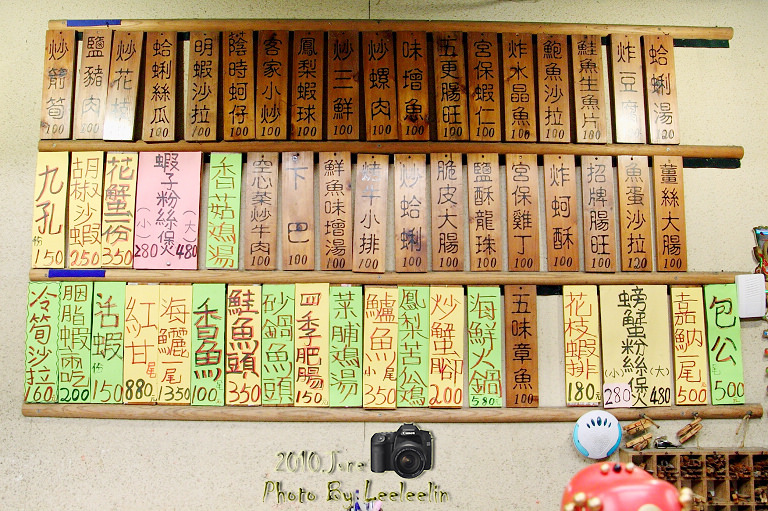 炒箭筍 100
鹽豬肉 100
炒花枝 100
蛤蜊絲瓜 100
明蝦沙拉 100
蔭時蚵仔 100
客家小炒 100
鳳梨蝦球 100
炒三鮮 100
炒螺肉 100
味增魚 100
五更腸旺 100
宮保蝦仁 100
炸水晶魚 100
鮑魚沙拉 100
鮭魚生魚片 100
炸豆腐 100
蛤蜊湯 100
九孔 150
胡椒沙蝦 250
花蟹 份 350
蝦子粉絲煲 (小)280 (大)480
香菇鷄湯
空心菜炒牛肉 100
下巴 100
鮮魚味增湯 100
小排 100
炒蛤蜊 100
脆皮大腸 100
鹽酥龍珠 100
宮保雞丁 100
炸蚵酥 100
招牌腸旺 100
魚蛋沙拉 120
薑絲大腸 100
冷筍沙拉 160
胭脂蝦 200
活蝦 150
紅甘 尾 880
海鱺 尾 350
香魚 100
鮭魚頭 350
砂鍋魚頭
四季肥腸 150
菜脯鷄湯
鱸魚 小尾 350
鳳梨苦瓜鷄
炒蟹腳 200
海鮮火鍋 580
五味章魚 100
花枝蝦排 180元
螃蟹粉絲煲 (小)280 (大)480
嘉魶 尾 500
包公 500
2010.June
Photo By Leeleelin